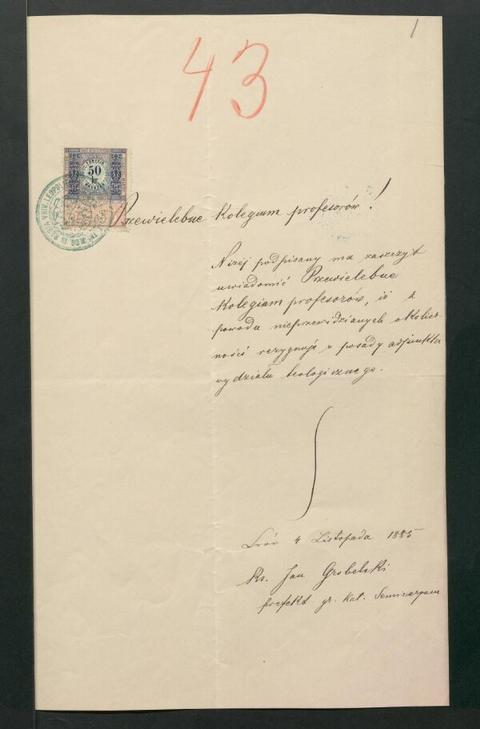 1
43
50
Przewielebne Kolegium profesorów!
Niżej podpisany ma zaszczyt
uwiadomić Przewielebne
Kolegiam profesorów, iż z
powodu nieprzewidzianych okolicz
ności rezygnuje z posady adjunkta
wydziału teologicznego.
Lwów 4 Listopada 1885
Ks. Jan Grobelski
prefekt gr. kat. Seminaryum